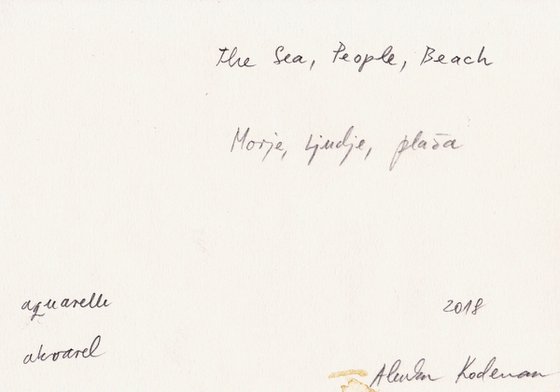 The Sea, People, Beach
Morje, Ljudje, plaža
aquarelle
akvarel
2018
Kodeman